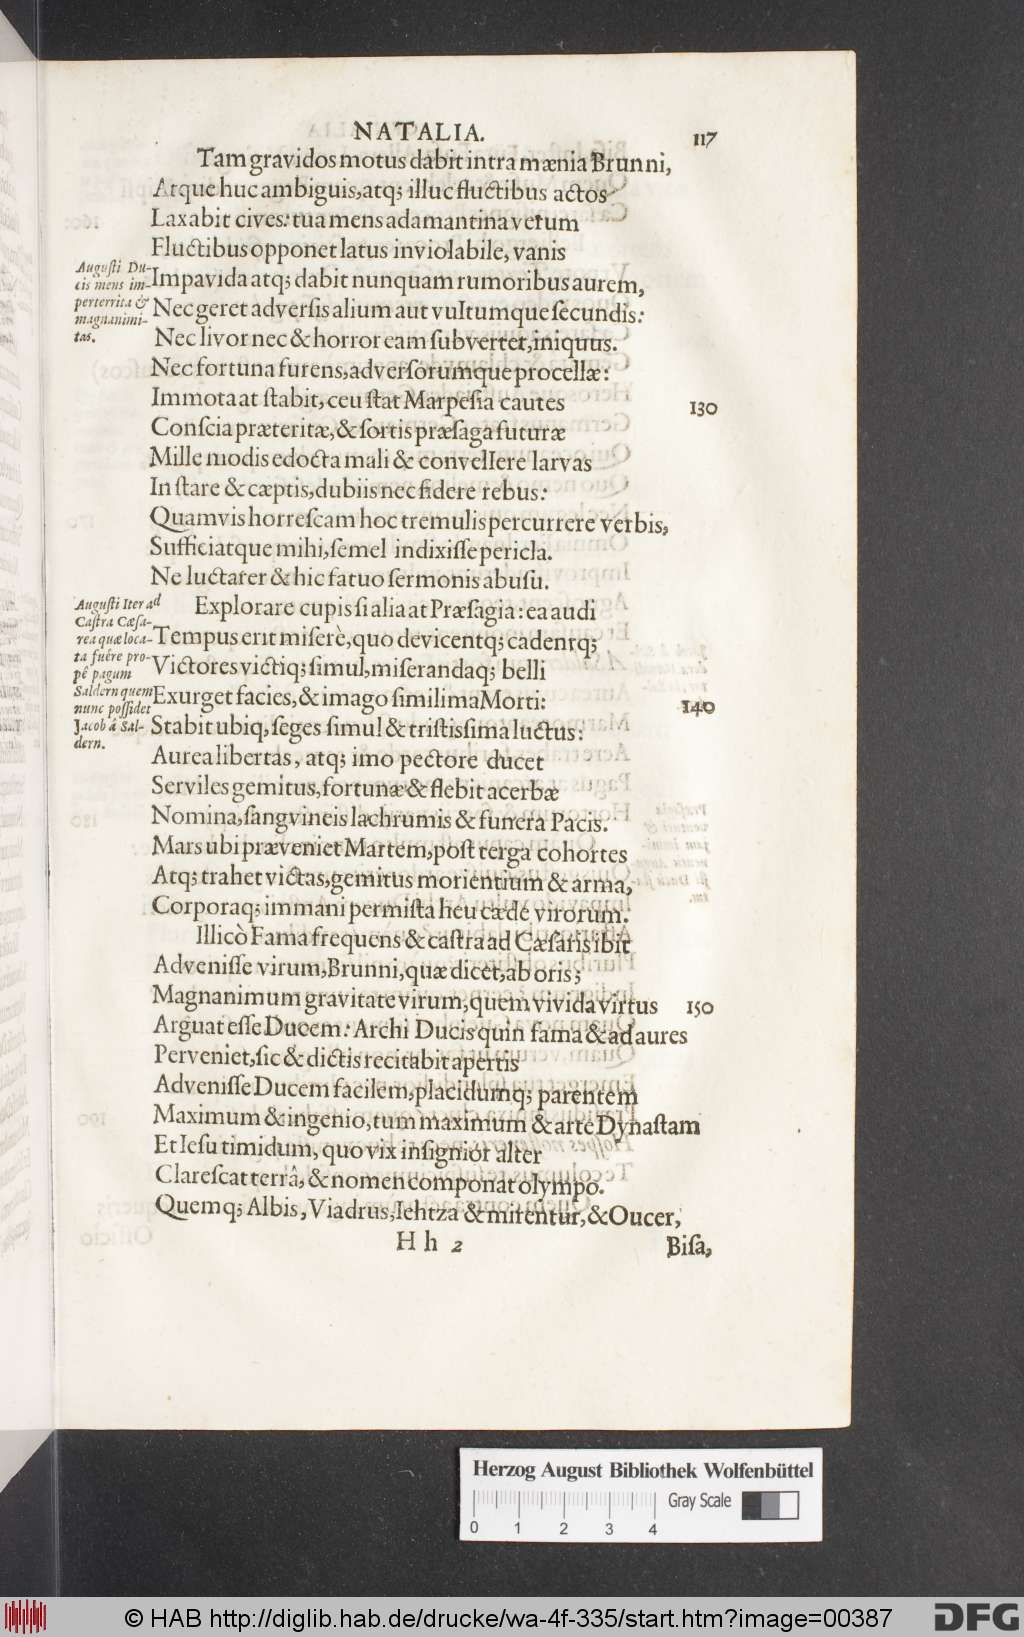 NATALIA. 117
Tam gravidos motus dabit intra mænia Brunni,
Atque huc ambiguis, atq; illuc fluctibus actos
Laxabit cives: tua mens adamantina verum
Fluctibus opponet latus inviolabile, vanis
Impavida atq; dabit nunquam rumoribus aurem,
Nec geret adversis alium aut vultumque secundis:
Nec livor nec & horror eam subvertet, iniquus.
Nec fortuna furens, adversorumque procellæ:
Immota at stabit, ceu stat Marpesia cautes 130
Conscia præteritæ, & sortis præsaga futuræ
Mille modis edocta mali & convellere larvas
In stare & cæptis, dubiis nec fidere rebus:
Quamvis horrescam hoc tremulis percurrere verbis,
Sufficiatque mihi, semel indixisse pericla.
Ne luctarer & hic fatuo sermonis abusu.
Explorare cupis si alia at Præsagia: ea audi
Tempus erit miserè, quo devicentq; cadentq;
Victores victiq; simul, miserandaq; belli
Exurget facies, & imago simillima Morti: 140
Stabit ubiq, seges simul & tristissima luctus:
Aurea libertas, atq; imo pectore ducet
Serviles gemitus, fortunæ & flebit acerbæ
Nomina, sangvineis lachrumis & funera Pacis.
Mars ubi præveniet Martem, post terga cohortes
Atq; trahet victas, gemitus morientium & arma,
Corporaq; immani permista heu cæde virorum.
Illicò Fama frequens & castra ad Cæsaris ibit
Advenisse virum, Brunni, quæ dicet, ab oris;
Magnanimum gravitate virum, quem vivida virtus 150
Arguat esse Ducem: Archi Ducis quin fama & ad aures
Perveniet, sic & dictis recitabit apertis
Advenisse Ducem facilem, placidumq; parentem
Maximum & ingenio, tum maximum & arte Dynastam
Et Iesu timidum, quo vix insignior alter
Clarescat terrâ, & nomen componat olympo.
Quemq; Albis, Viadrus, Iehtza & mirentur, & Oucer,
H h 2 Bisa,
Augusti Du-
cis mens im-
perterrita &
magnanimi-
tas.
Augusti Iter ad
Castra Cæsa-
rea quæ loca-
ta fuêre pro-
pê pagum
Saldern quem
nunc possidet
Jacob á Sal-
dern.
Herzog August Bibliothek Wolfenbüttel
Gray Scale
0 1 2 3 4
© HAB http://diglib.hab.de/drucke/wa-4f-335/start.htm?image=00387
DFG